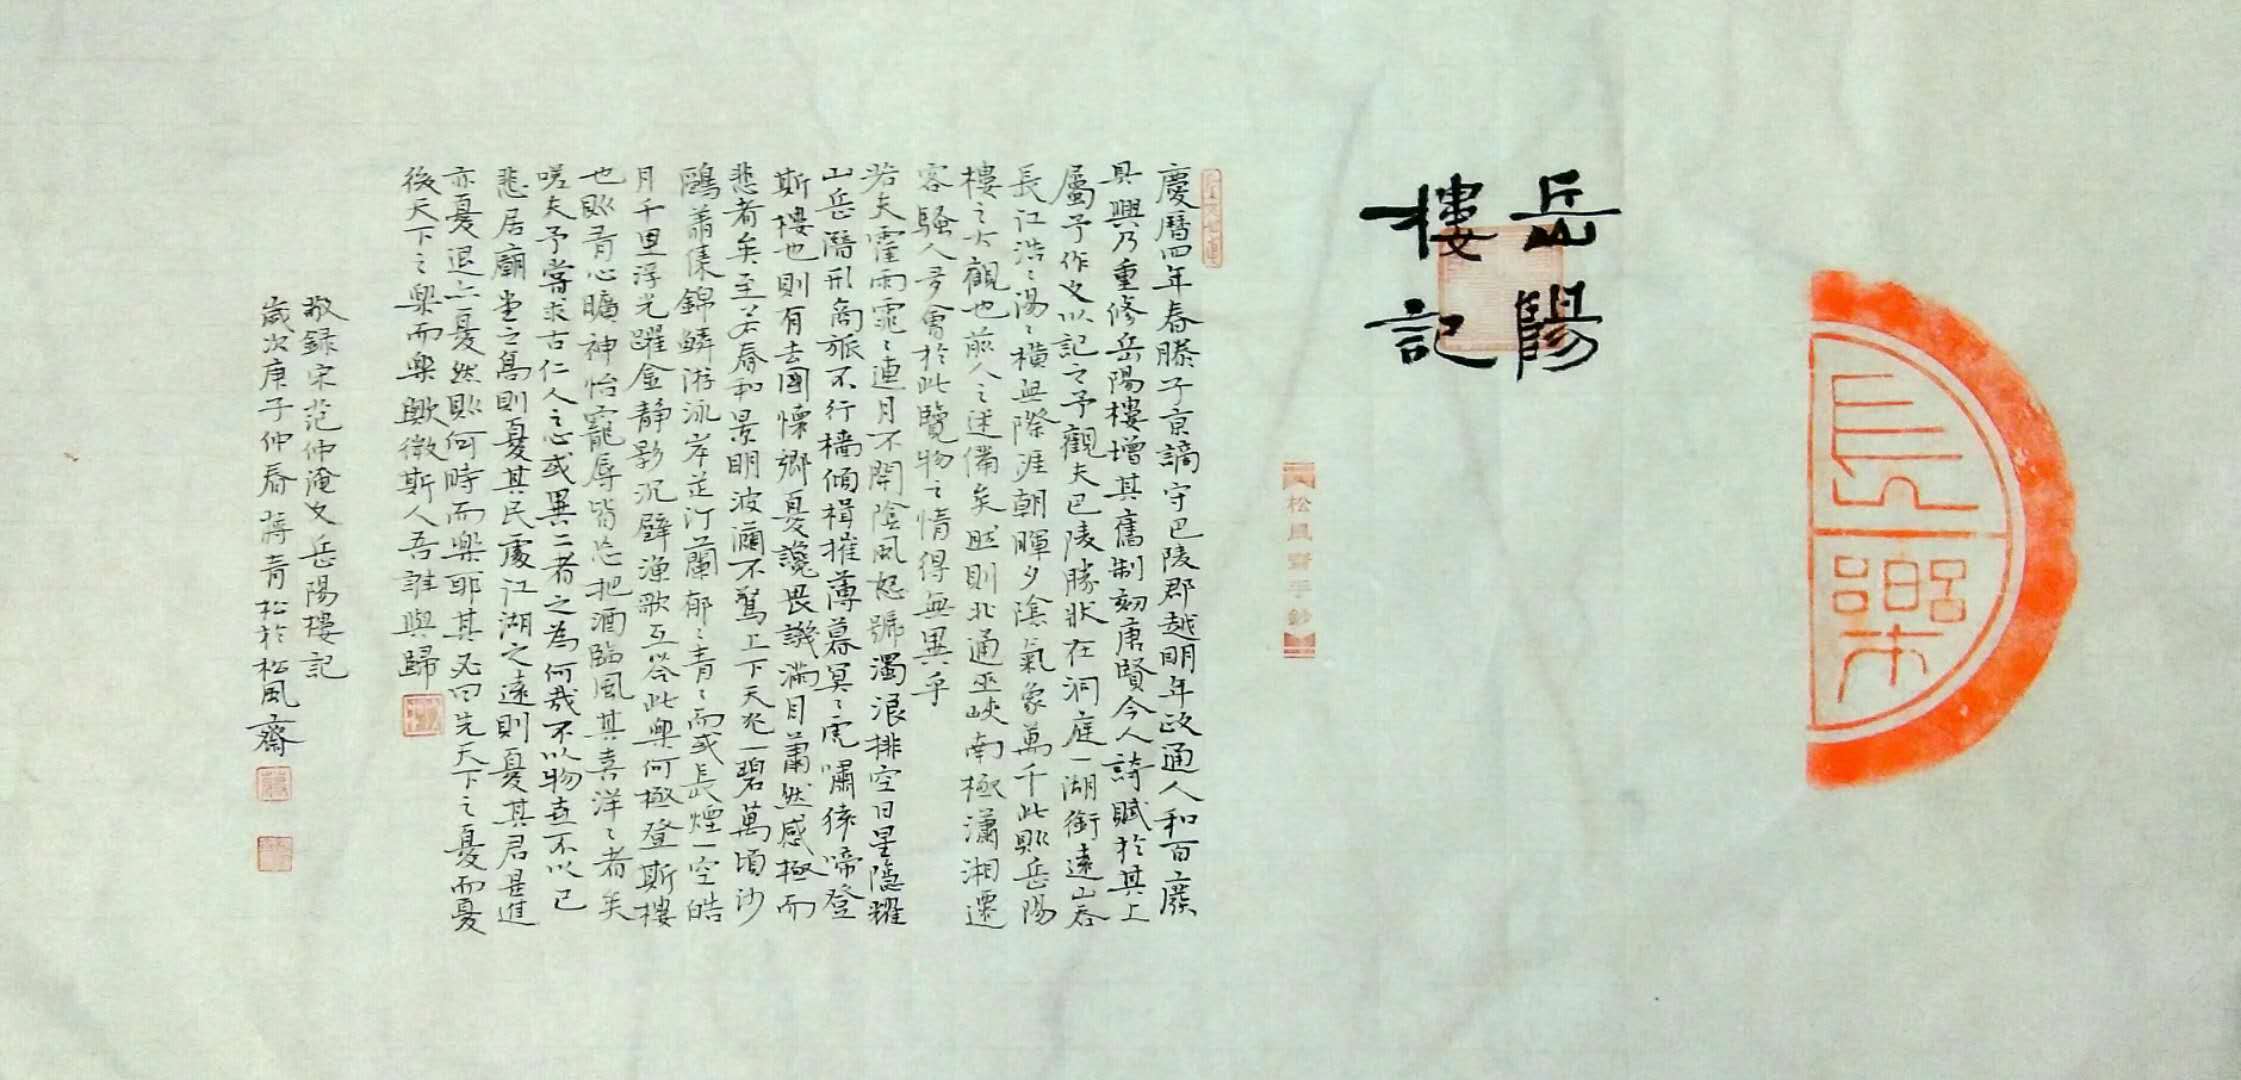 長樂
岳陽
樓記
松風齋手鈔
慶曆四年春滕子京謫守巴陵郡越明年政通人和百廢
具興乃重修岳陽樓增其舊制刻唐賢今人詩賦於其上
屬予作文以記之予觀夫巴陵勝狀在洞庭一湖銜遠山吞
長江浩〻湯〻橫無際涯朝暉夕陰氣象萬千此則岳陽
樓之大觀也前人之述備矣然則北通巫峽南極瀟湘遷
客騷人多會於此覽物之情得無異乎
若夫霪雨霏〻連月不開陰風怒號濁浪排空日星隱耀
山岳潛形商旅不行檣傾楫摧薄暮冥〻虎嘯猿啼登
斯樓也則有去國懷鄉憂讒畏譏滿目蕭然感極而
悲者矣至若春和景明波瀾不驚上下天光一碧萬頃沙
鷗翔集錦鱗游泳岸芷汀蘭郁〻青〻而或長煙一空皓
月千里浮光躍金靜影沉璧漁歌互答此樂何極登斯樓
也則有心曠神怡寵辱皆忘把酒臨風其喜洋〻者矣
嗟夫予嘗求古仁人之心或異二者之為何哉不以物喜不以己
悲居廟堂之高則憂其民處江湖之遠則憂其君是進
亦憂退亦憂然則何時而樂耶其必曰先天下之憂而憂
後天下之樂而樂歟微斯人吾誰與歸
敬錄宋范仲淹文岳陽樓記
歲次庚子仲春蔣青松於松風齋